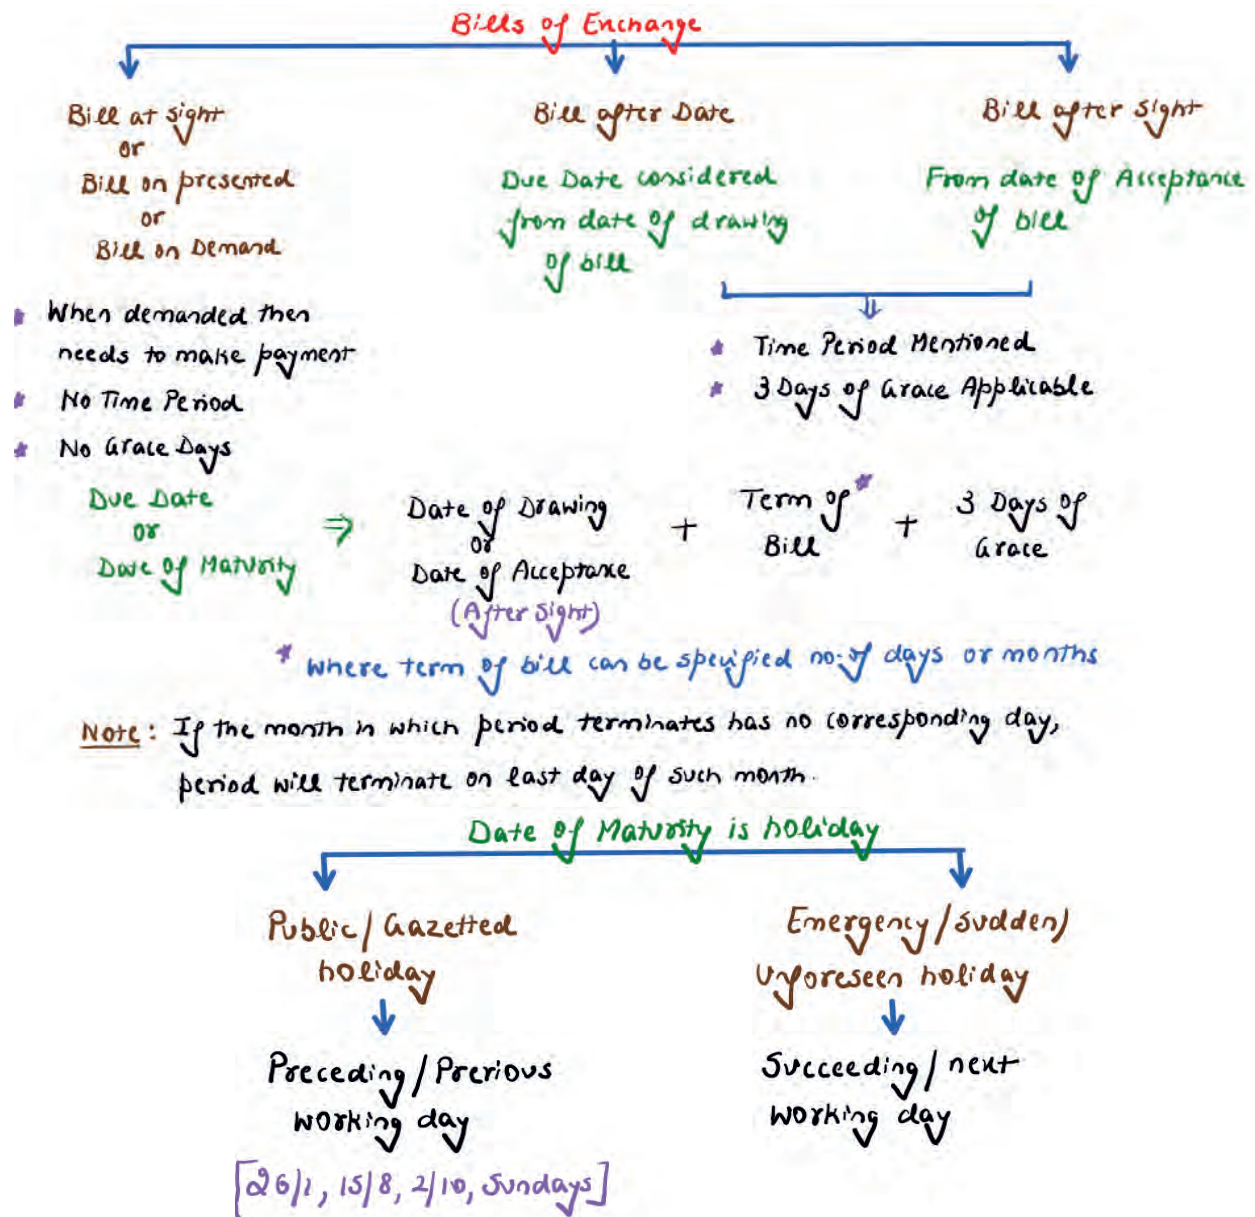 Bills of Exchange
Bill at sight
or
Bill on presented
or
Bill on Demand
* When demanded then
needs to make payment
* No Time Period
* No Grace Days
Bill after Date
Due Date considered
from date of drawing
of bill
Bill after sight
From date of Acceptance
of bill
* Time Period Mentioned
* 3 Days of Grace Applicable
Due Date
or
Date of Maturity
⇒
Date of Drawing
or
Date of Acceptance
(After sight)
+
Term of *
Bill
+
3 Days of
Grace
* Where term of bill can be specified no. of days or months
Note: If the month in which period terminates has no corresponding day,
period will terminate on last day of such month.
Date of Maturity is holiday
Public/Gazetted
holiday
Preceding/Previous
working day
[26/1, 15/8, 2/10, Sundays]
Emergency/Sudden/
Unforeseen holiday
Succeeding/next
working day